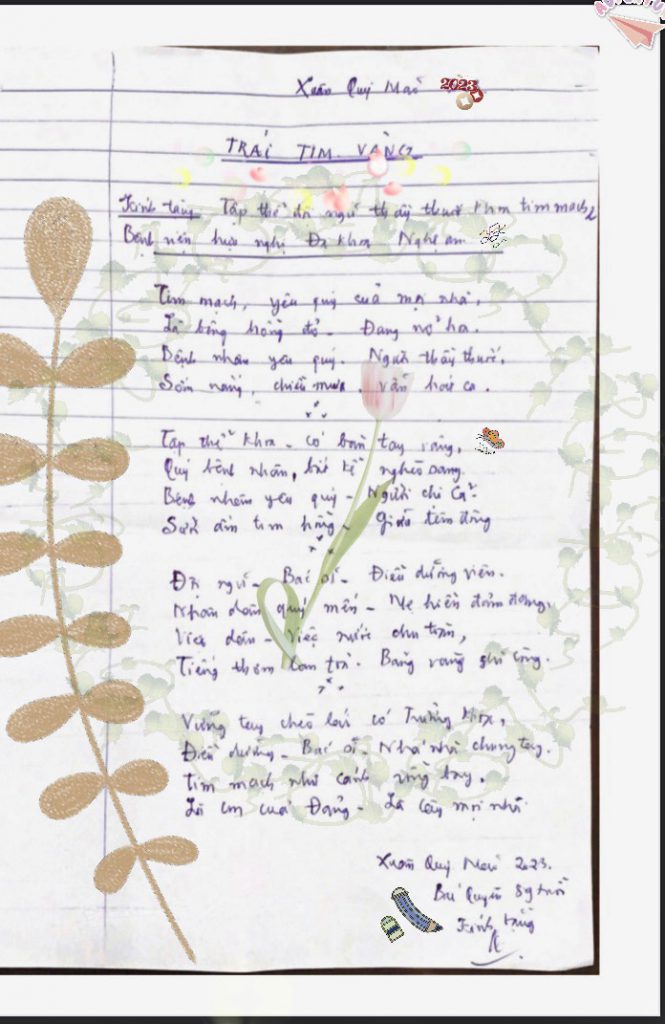 Xuân Quý Mão 2023
TRÁI TIM VÀNG
Kính tặng Tập thể đội ngũ thầy thuốc khoa tim mạch
Bệnh viện hữu nghị Đa khoa Nghệ an
Tim mạch, yêu quý của mọi nhà,
Là bông hồng đỏ - Đang nở hoa.
Bệnh nhân yêu quý. Người thầy thuốc,
Sớm nắng, chiều mưa. vẫn hát ca.
Tập thể khoa - có bàn tay vàng,
Quý bệnh nhân, bất kể nghèo sang.
Bệnh nhân yêu quý - Người chị Cả
Sưởi ấm tim hồng - Giữa đêm đông
Đội ngũ - Bác sĩ - Điều dưỡng viên.
Nhân dân quý mến - Mẹ hiền đảm đang,
Việc dân - việc nước chu toàn,
Tiếng thơm lan toả. Bảng vàng ghi công.
Vững tay chèo lái có Trưởng khoa,
Điều dưỡng - Bác sĩ - chung tay.
Tim mạch như cánh bay,
Là của Đảng - Là mọi nhà
Xuân Quý Mão 2023.
Bác 89 tuổi
Kính tặng